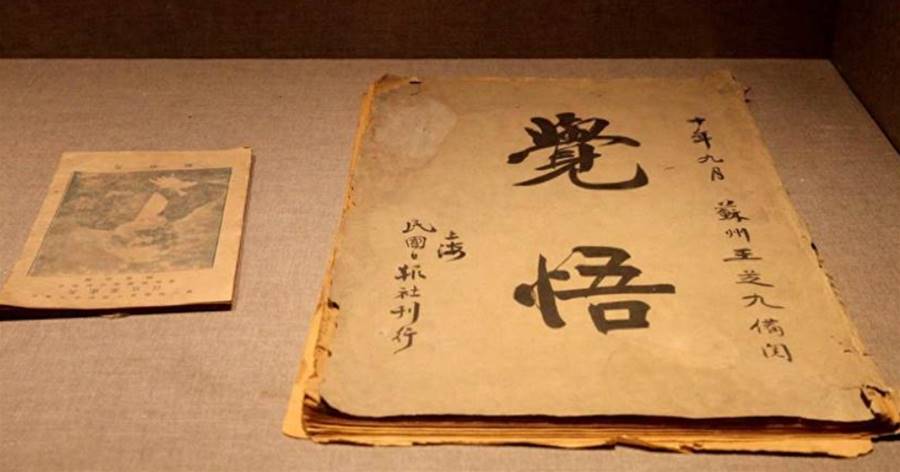 十年九月 蘇州王芝九備閱
覺悟
上海
民國日報社刊行